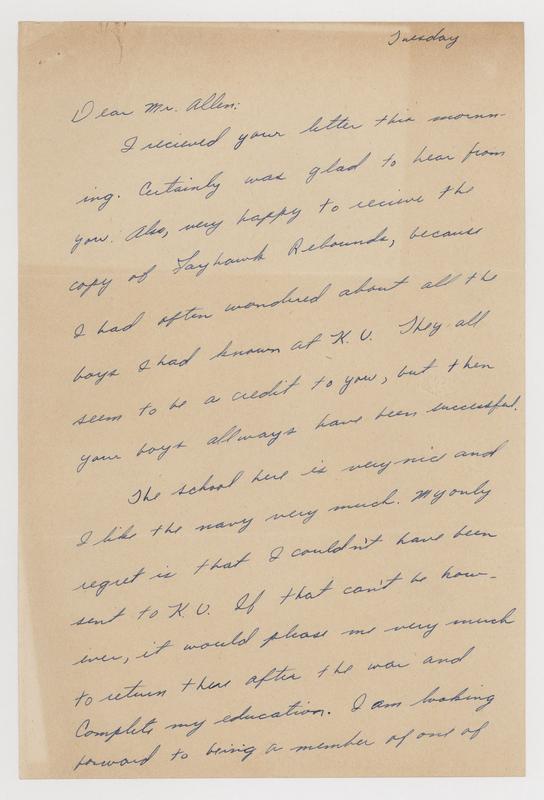 Tuesday
Dear Mr. Allen:
I recieved your letter this mornn-
ing. Certainly was glad to hear from
you. Also, very happy to recieve the
copy of Jayhawk Rebounds, because
I had often wondered about all the
boys I had known at K.U. They all
seem to be a credit to you, but then
your boys allways have been successful.
The school here is very nice and
I like the navy very much. My only
regret is that I couldn't have been
sent to K.U. If that can't be how-
ever, it would please me very much
to return there after the war and
Complete my education. I am looking
forward to being a member of one of